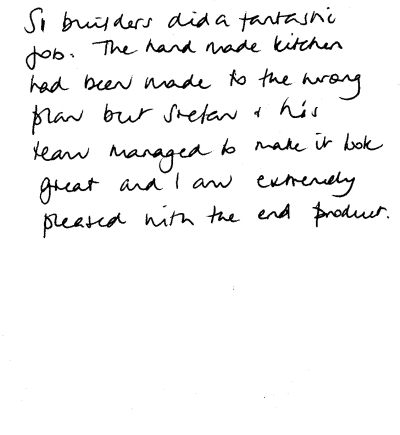 S1 builders did a fantastic
job. The hand made kitchen
had been made to the wrong
plan but Stefan & his
team managed to make it look
great and I am extremely
pleased with the end product.